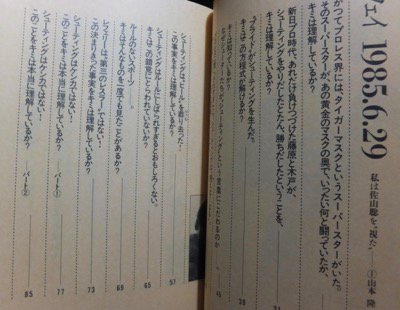 ウェイ 1985.6.29
私は佐山聡を“視た” ①山本 隆
かつてプロレス界には、タイガーマスクというスーパースターがいた。
そのスーパースターが、あの黄金のマスクの奥で、いったい何と闘っていたか、
キミは理解しているか?
新日プロ時代、あれだけ負けつづけた藤原と木戸が、
シューティングをいかしたとたん、勝ちだしたということを、
キミは理解しているか? 31
プライドがシューティングを生んだ、
キミは、この方程式が解けるか? 39
シューティングという言葉にこだわるのか
キミは知っているか? 45
シューティングは、ヒールを追い去った!
この事実をキミは理解しているか? 57
シューティングはルールにしばられすぎるとおもしろくない。
キミはこの錯覚にとらわれていないか? 65
ルールのないスポーツ
キミはそんなものを一度でも見たことがあるか? 69
レフェリーは“第三のレスラー”ではない!
この決まりきった事実をキミは理解しているか? 73
シューティングはケンカではない!
このことをキミは本当に理解しているか? パート① 77
シューティングはケンカではない!
このことをキミは本当に理解しているか? パート② 85